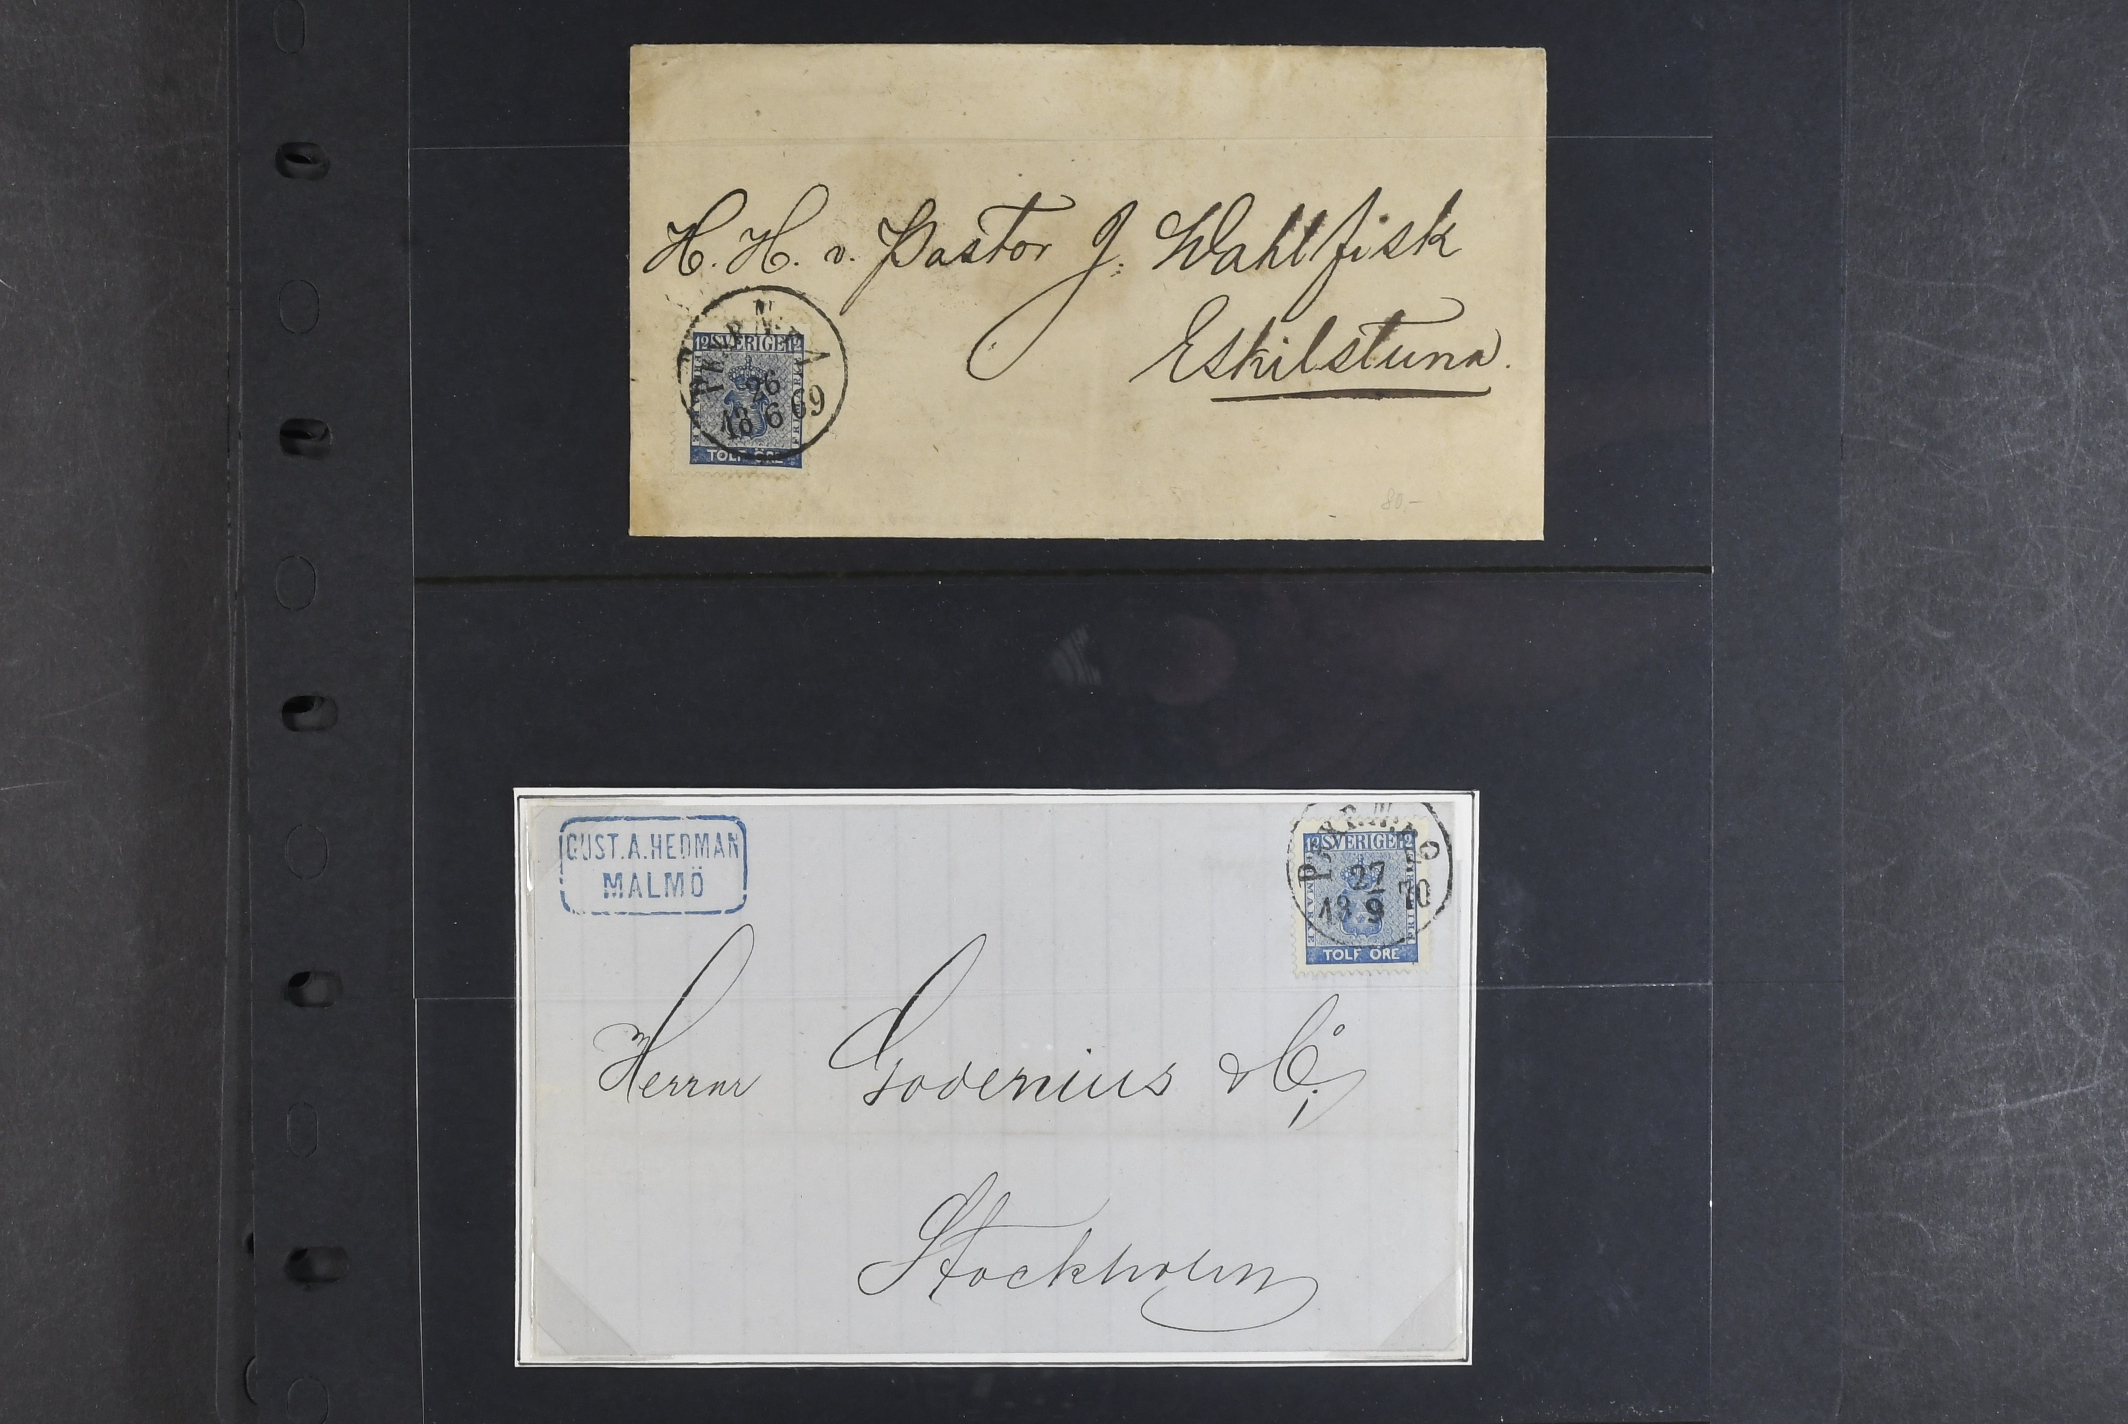 H. H. v. Pastor J. Wahlfisk
Eskilstuna.
12 SVERIGE 12
26
18 6 69
TOLF ÖRE
80,-
GUST. A. HEDMAN
MALMÖ
12 SVERIGE 12
27
18 9 70
MARKE
TOLF ÖRE
Herrar Godenius & Co;
Stockholm